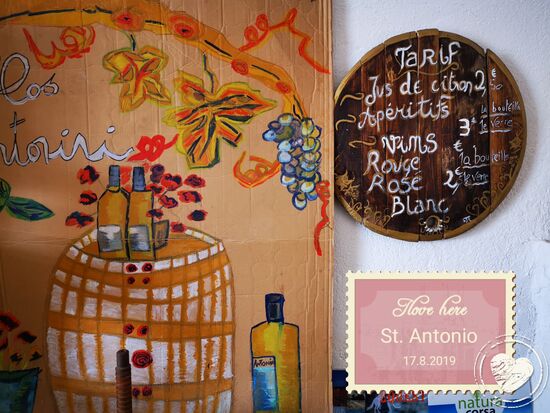 los
Tarif
Jus de citron 2,
Apéritifs
la bouteille
3€
le verre
Vins
Rouge
la bouteille
Rosé
2,
le verre
Blanc
Antonini
I love here
St. Antonio
17.8.2019
natura
corsa